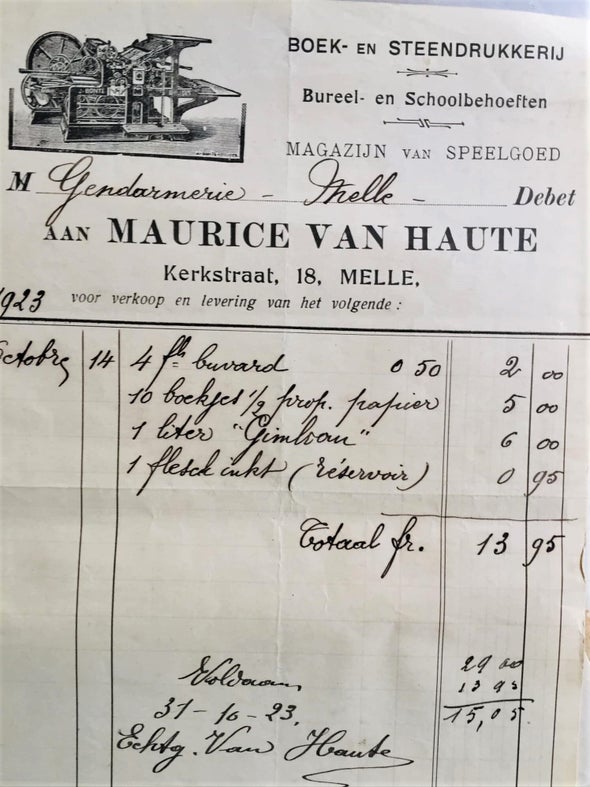 BOEK- EN STEENDRUKKERIJ
Bureel- en Schoolbehoeften
MAGAZIJN VAN SPEELGOED
M Gendarmerie - Melle - Debet
AAN MAURICE VAN HAUTE
Kerkstraat, 18, MELLE,
1923 voor verkoop en levering van het volgende :
Octobre 14 4 flh buvard 0 50 2 00
10 boekjes 1/2 prop. papier 5 00
1 liter "Gimlvau" 6 00
1 flesch inkt (réservoir) 0 95
Totaal fr. 13 95
29 00
Voldaan, 13 95
31-10-23. 15,05
Echtg. Van Haute